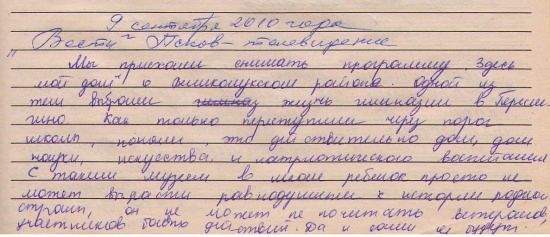 9 сентября 2010 года
"Вести" Псков - телевидение
Мы приехали снимать программу "Здесь
мой дом" о Великолукском районе. Одной из
тем выбрали жизнь гимназии в Пореси
гино Как только переступили через порог
школы, поняли, это действительно дом, дом
науки, искусства и патриотического воспитания
С таким музеем в школе ребенок просто не
может вырасти равнодушным к истории родной
страны, он не может не почитать ветеранов,
участников боевых действий. Да и сами не будут.